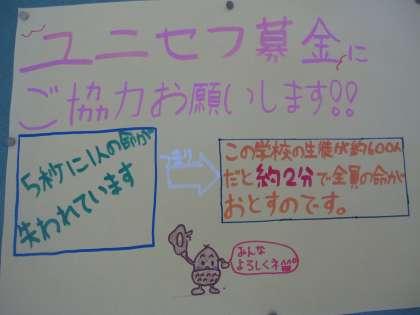 ユニセフ募金に
ご協力お願いします!!
5秒に1人の命が
失われています
つまり
この学校の生徒が約600人
だと約2分で全員の命が
おとすのです。
みんな
よろしくネ